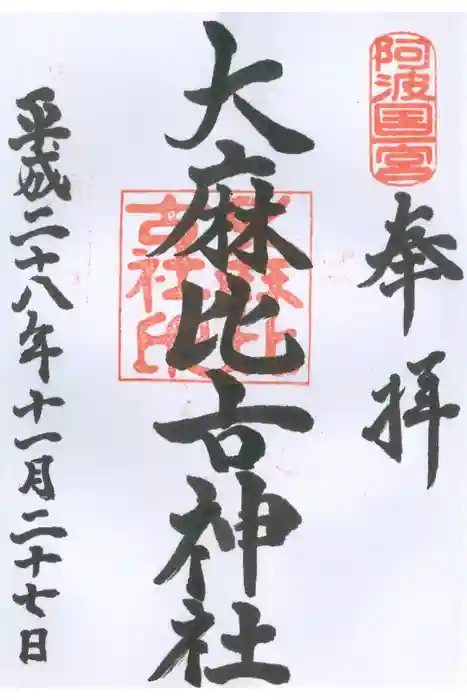 阿波国一宮
奉拝
大麻比古神社
平成二十八年十一月二十七日